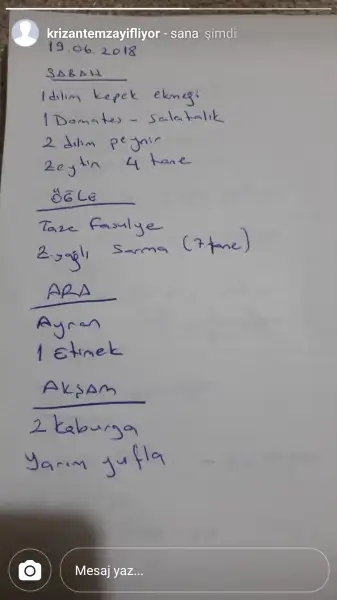 krizantemzayifliyor - sana şimdi
19.06.2018
SABAH
1 dilim kepek ekmeği
1 Domates - Salatalık
2 dilim peynir
Zeytin 4 tane
ÖĞLE
Taze Fasulye
Z.yağlı Sarma (7 tane)
ARA
Ayran
1 Etimek
AKŞAM
2 kaburga
Yarım yufla
Mesaj yaz...